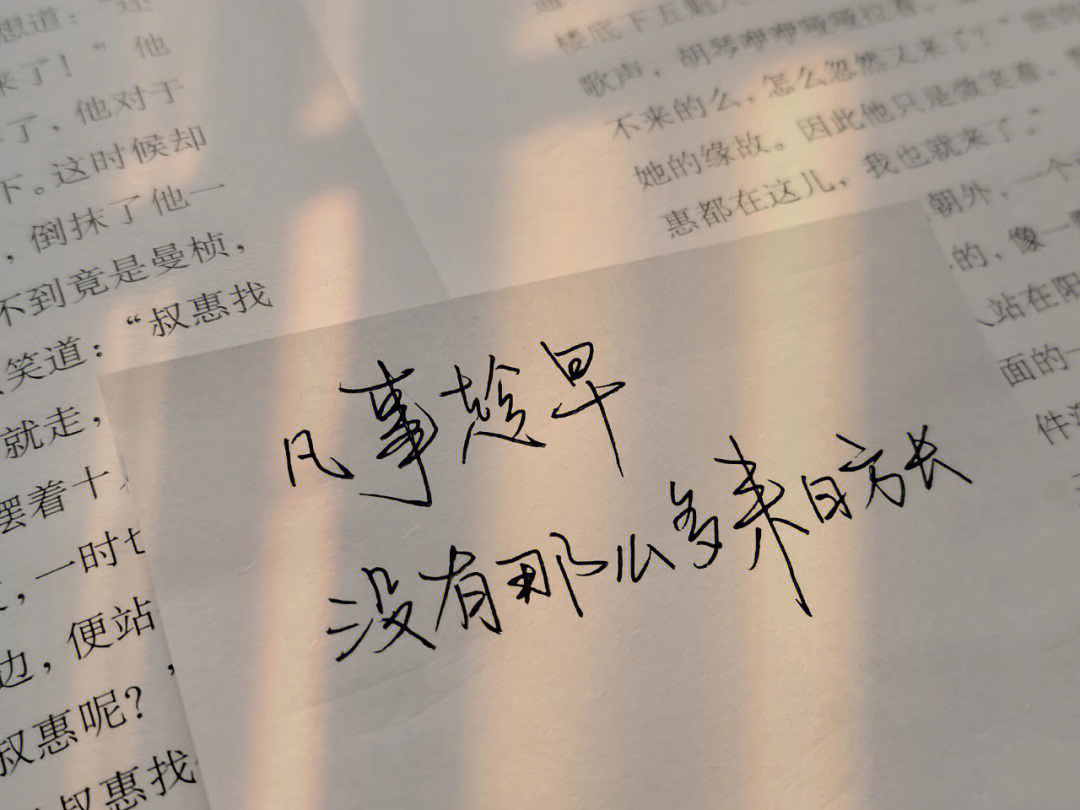 来了！”他
了，他对于
下。这时候却
，倒抹了他一
不到竟是曼桢，
笑道：“叔惠找
就走，
摆着十
，一时
边，便站
叔惠呢？
叔惠找
歌声，胡琴咿咿哑哑拉着。
不来的么，怎么忽然又来了？”
她的缘故。因此他只是微笑着，
惠都在这儿，我也就来了。”
朝外，一个
的，像一
站在阳
面的一
件
凡事趁早
没有那么多来日方长